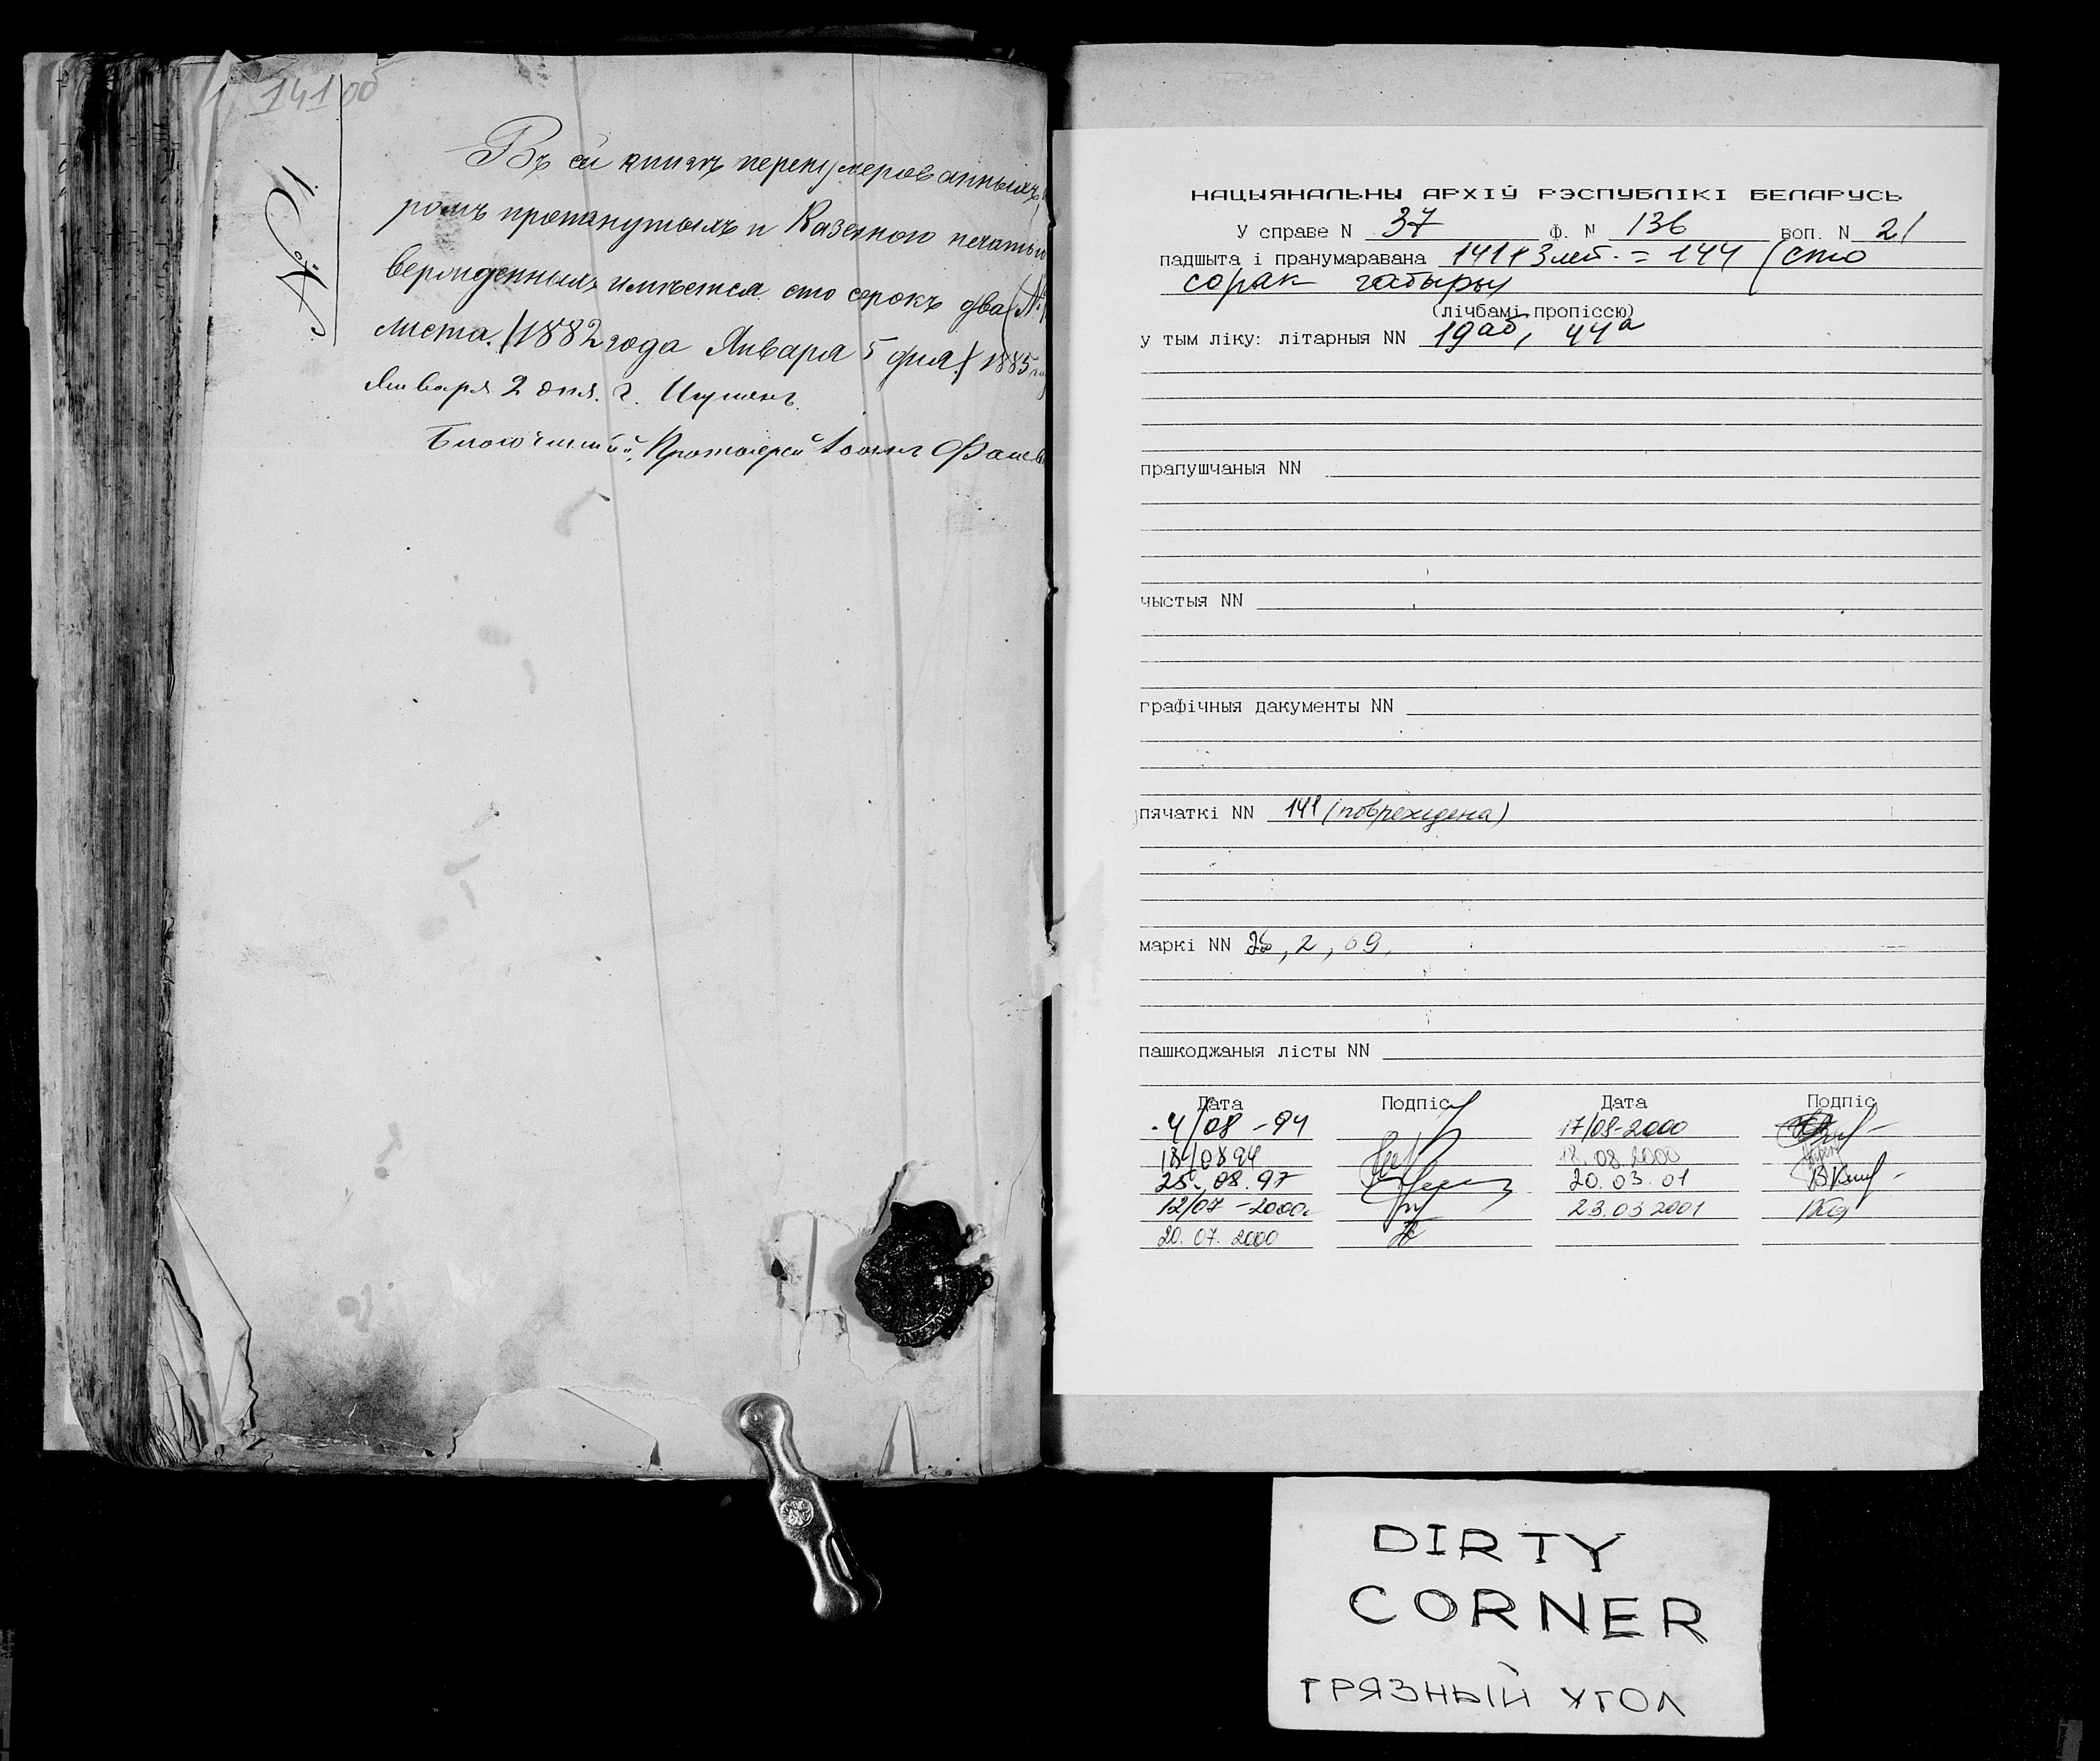 141об
Въ сей книгѣ перенумерованныхъ,
ромъ протянутыхъ и Казенною печатью
вержденныхъ имѣется сто сорокъ два
листа. 1882 года Января 5 дня. 1885
Января 2 дня. г. Игуменъ.
Благочинный, Протоіерей Іоаннъ
НАЦЫЯНАЛЬНЫ АРХІЎ РЭСПУБЛІКІ БЕЛАРУСЬ
У справе N 37 ф. N 136 воп. N 21
падшыта і пранумаравана 141+3 лит. = 144 (сто
сорак чатыры
(лічбамі, пропіссю)
у тым ліку: літарныя NN 19аб, 44а
прапушчаныя NN
чыстыя NN
графічныя дакументы NN
пячаткі NN 141 (повреждена)
маркі NN 2, 69.
пашкоджаныя лісты NN
Дата Подпіс Дата Подпіс
4/08-94 17/08-2000
18/0894 18.08.2000
25.08.97 20.03.01
12/07-2000г 23.03 2001
20.07.2000
DIRTY
CORNER
ГРЯЗНЫЙ УГОЛ